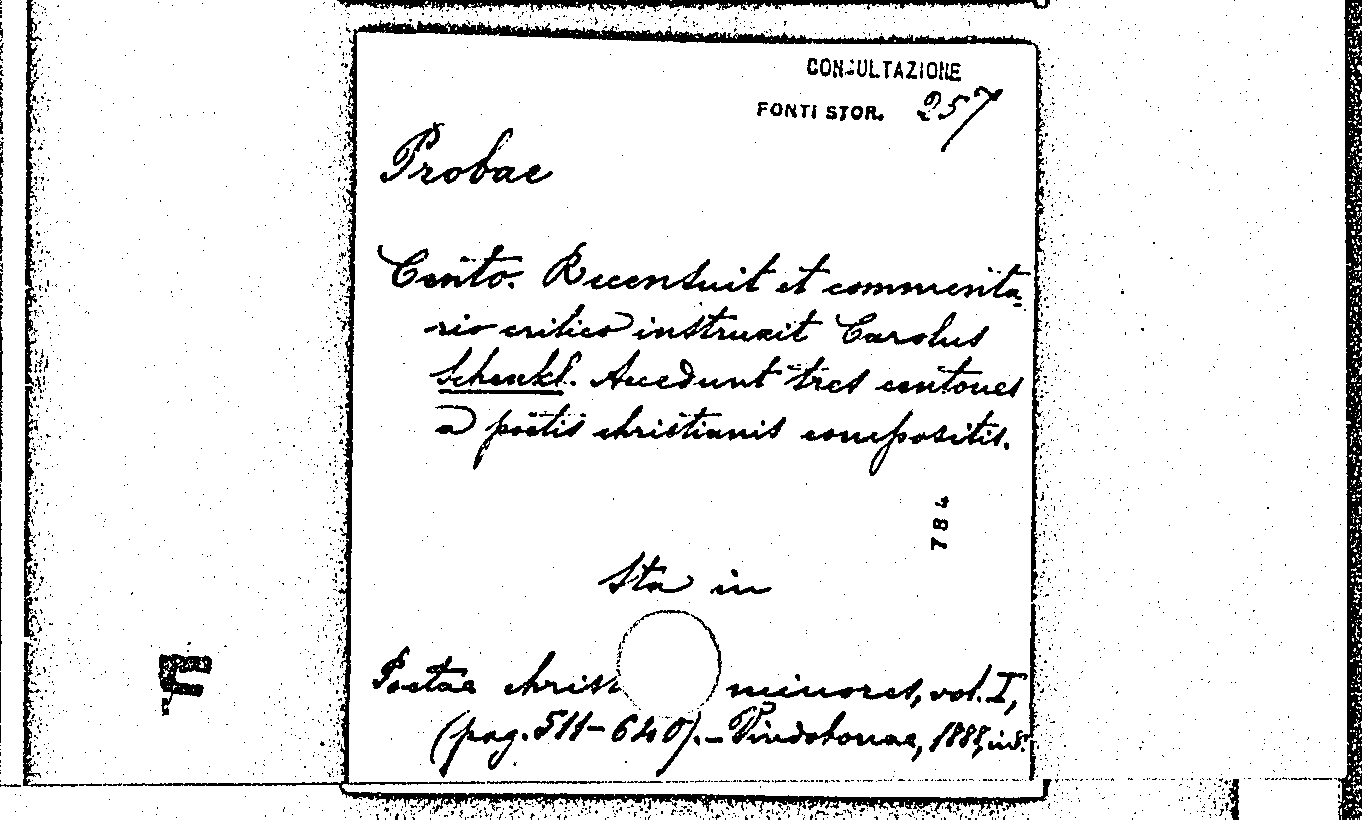 CONSULTAZIONE
FONTI STOR. 257
Probae
Cento. Recensuit et commenta-
rio critico instruxit Carolus
Schenkl. Accedunt tres centones
a poëtis christianis compositis.
784
Sta in
Poetae christ minores, vol. I,
(pag. 511-640). - Vindobonae, 1888, in 8.
F